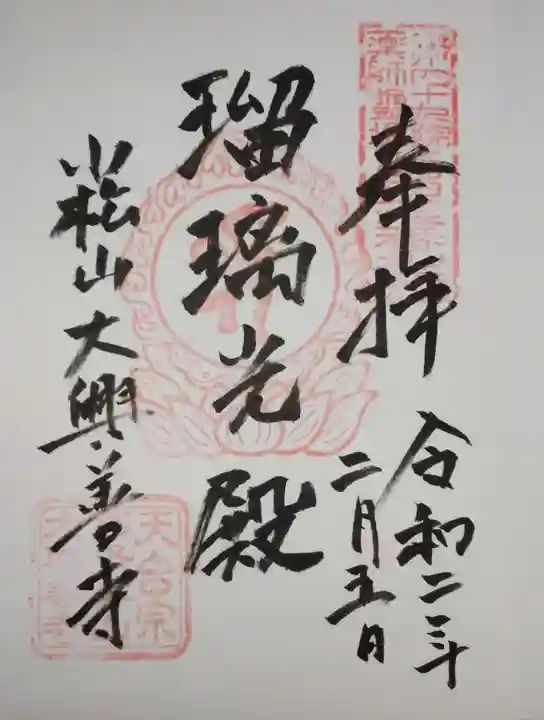 奉拝
令和二年
二月五日
瑠璃光殿
小松山大興善寺
天台宗